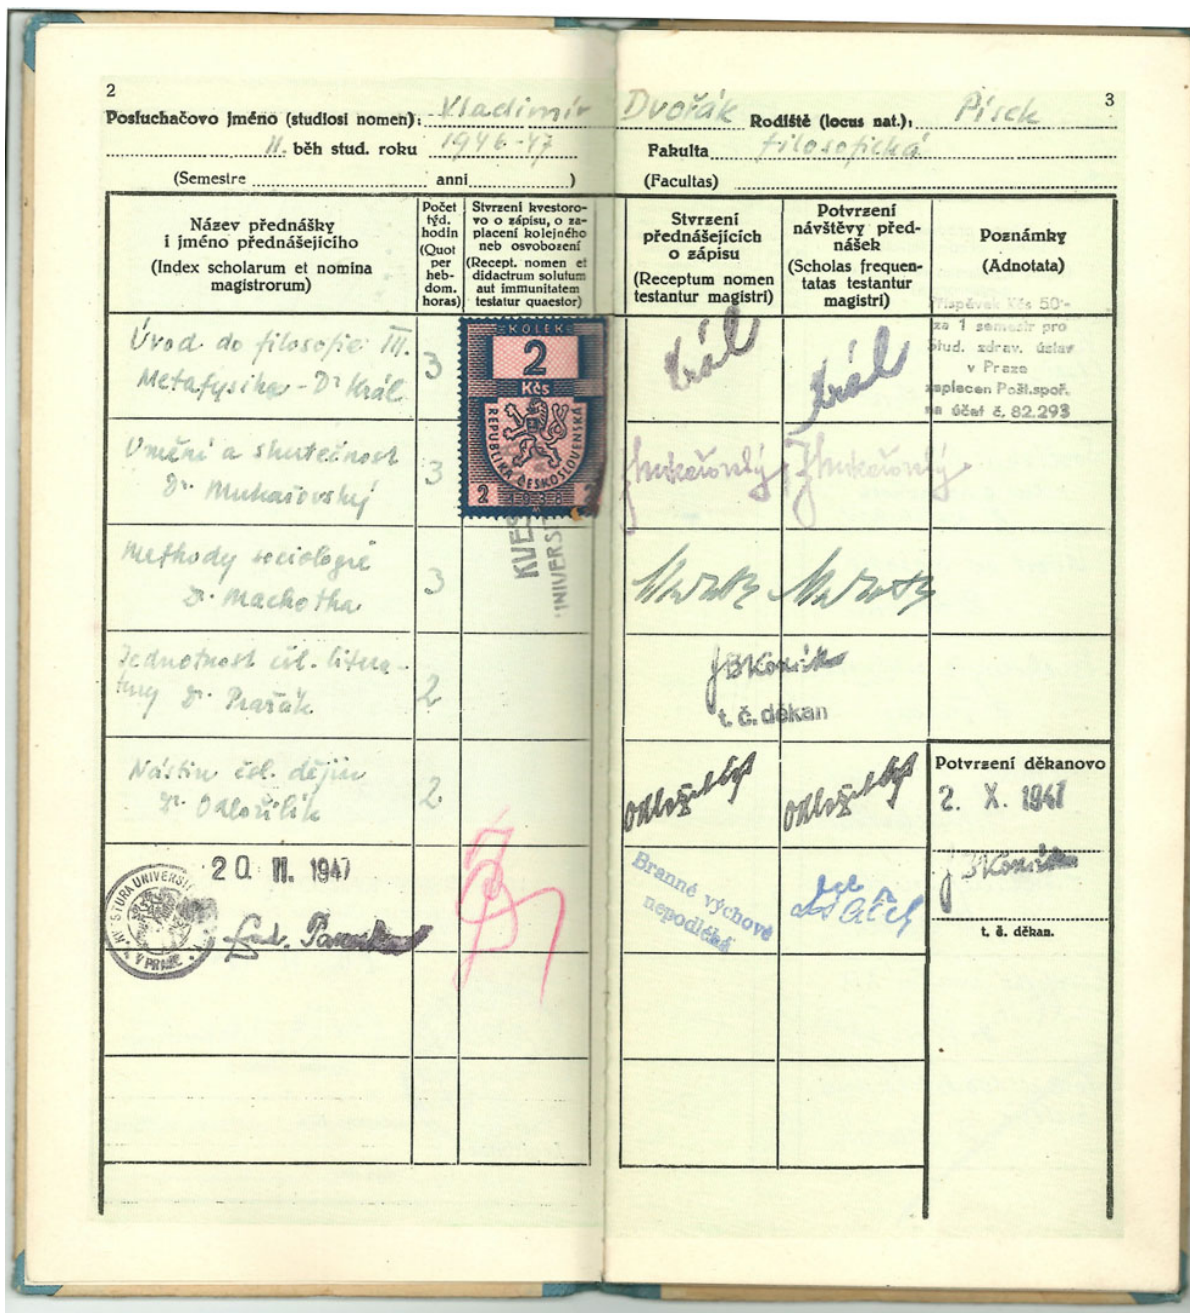 2
Posluchačovo jméno (studiosi nomen): Vladimír Dvořák Rodiště (locus nat.): Písek
3
II. běh stud. roku 1946-47 Fakulta filosofická
(Semestre anni ) (Facultas)
Název přednášky
i jméno přednášejícího
(Index scholarum et nomina
magistrorum)
Počet
týd.
hodin
(Quot
per
heb-
dom.
horas)
Stvrzení kvestoro-
vo o zápisu, o za-
placení kolejného
neb osvobození
(Recept. nomen et
didactrum solutum
aut immunitatem
testatur quaestor)
Stvrzení
přednášejících
o zápisu
(Receptum nomen
testantur magistri)
Potvrzení
návštěvy před-
nášek
(Scholas frequen-
tatas testantur
magistri)
Poznámky
(Adnotata)
Úvod do filosofie III.
Metafysika - Dr Král
3
KOLEK
2
Kčs
REPUBLIKA ČESKOSLOVENSKÁ
2 1938 2
Král
Král
Příspěvek Kčs 50·-
za 1 semestr pro
stud. zdrav. ústav
v Praze
zaplacen Pošt.spoř.
na účet č. 82.293
Umění a skutečnost
Dr. Mukařovský
3
JMukařovský
JMukařovský
KVES
UNIVERS
Methody sociologie
Dr. Machotka
3
Jednotnost čsl. litera-
tury Dr. Pražák
2
t. č. děkan
Nástin čsl. dějin
Dr. Odložilík
2
Odložilík
Odložilík
Potvrzení děkanovo
2. X. 1947
t. č. děkan.
20. II. 1947
KVESTURA UNIVERSI
V PRAZE
Branné výchově
nepodléhá